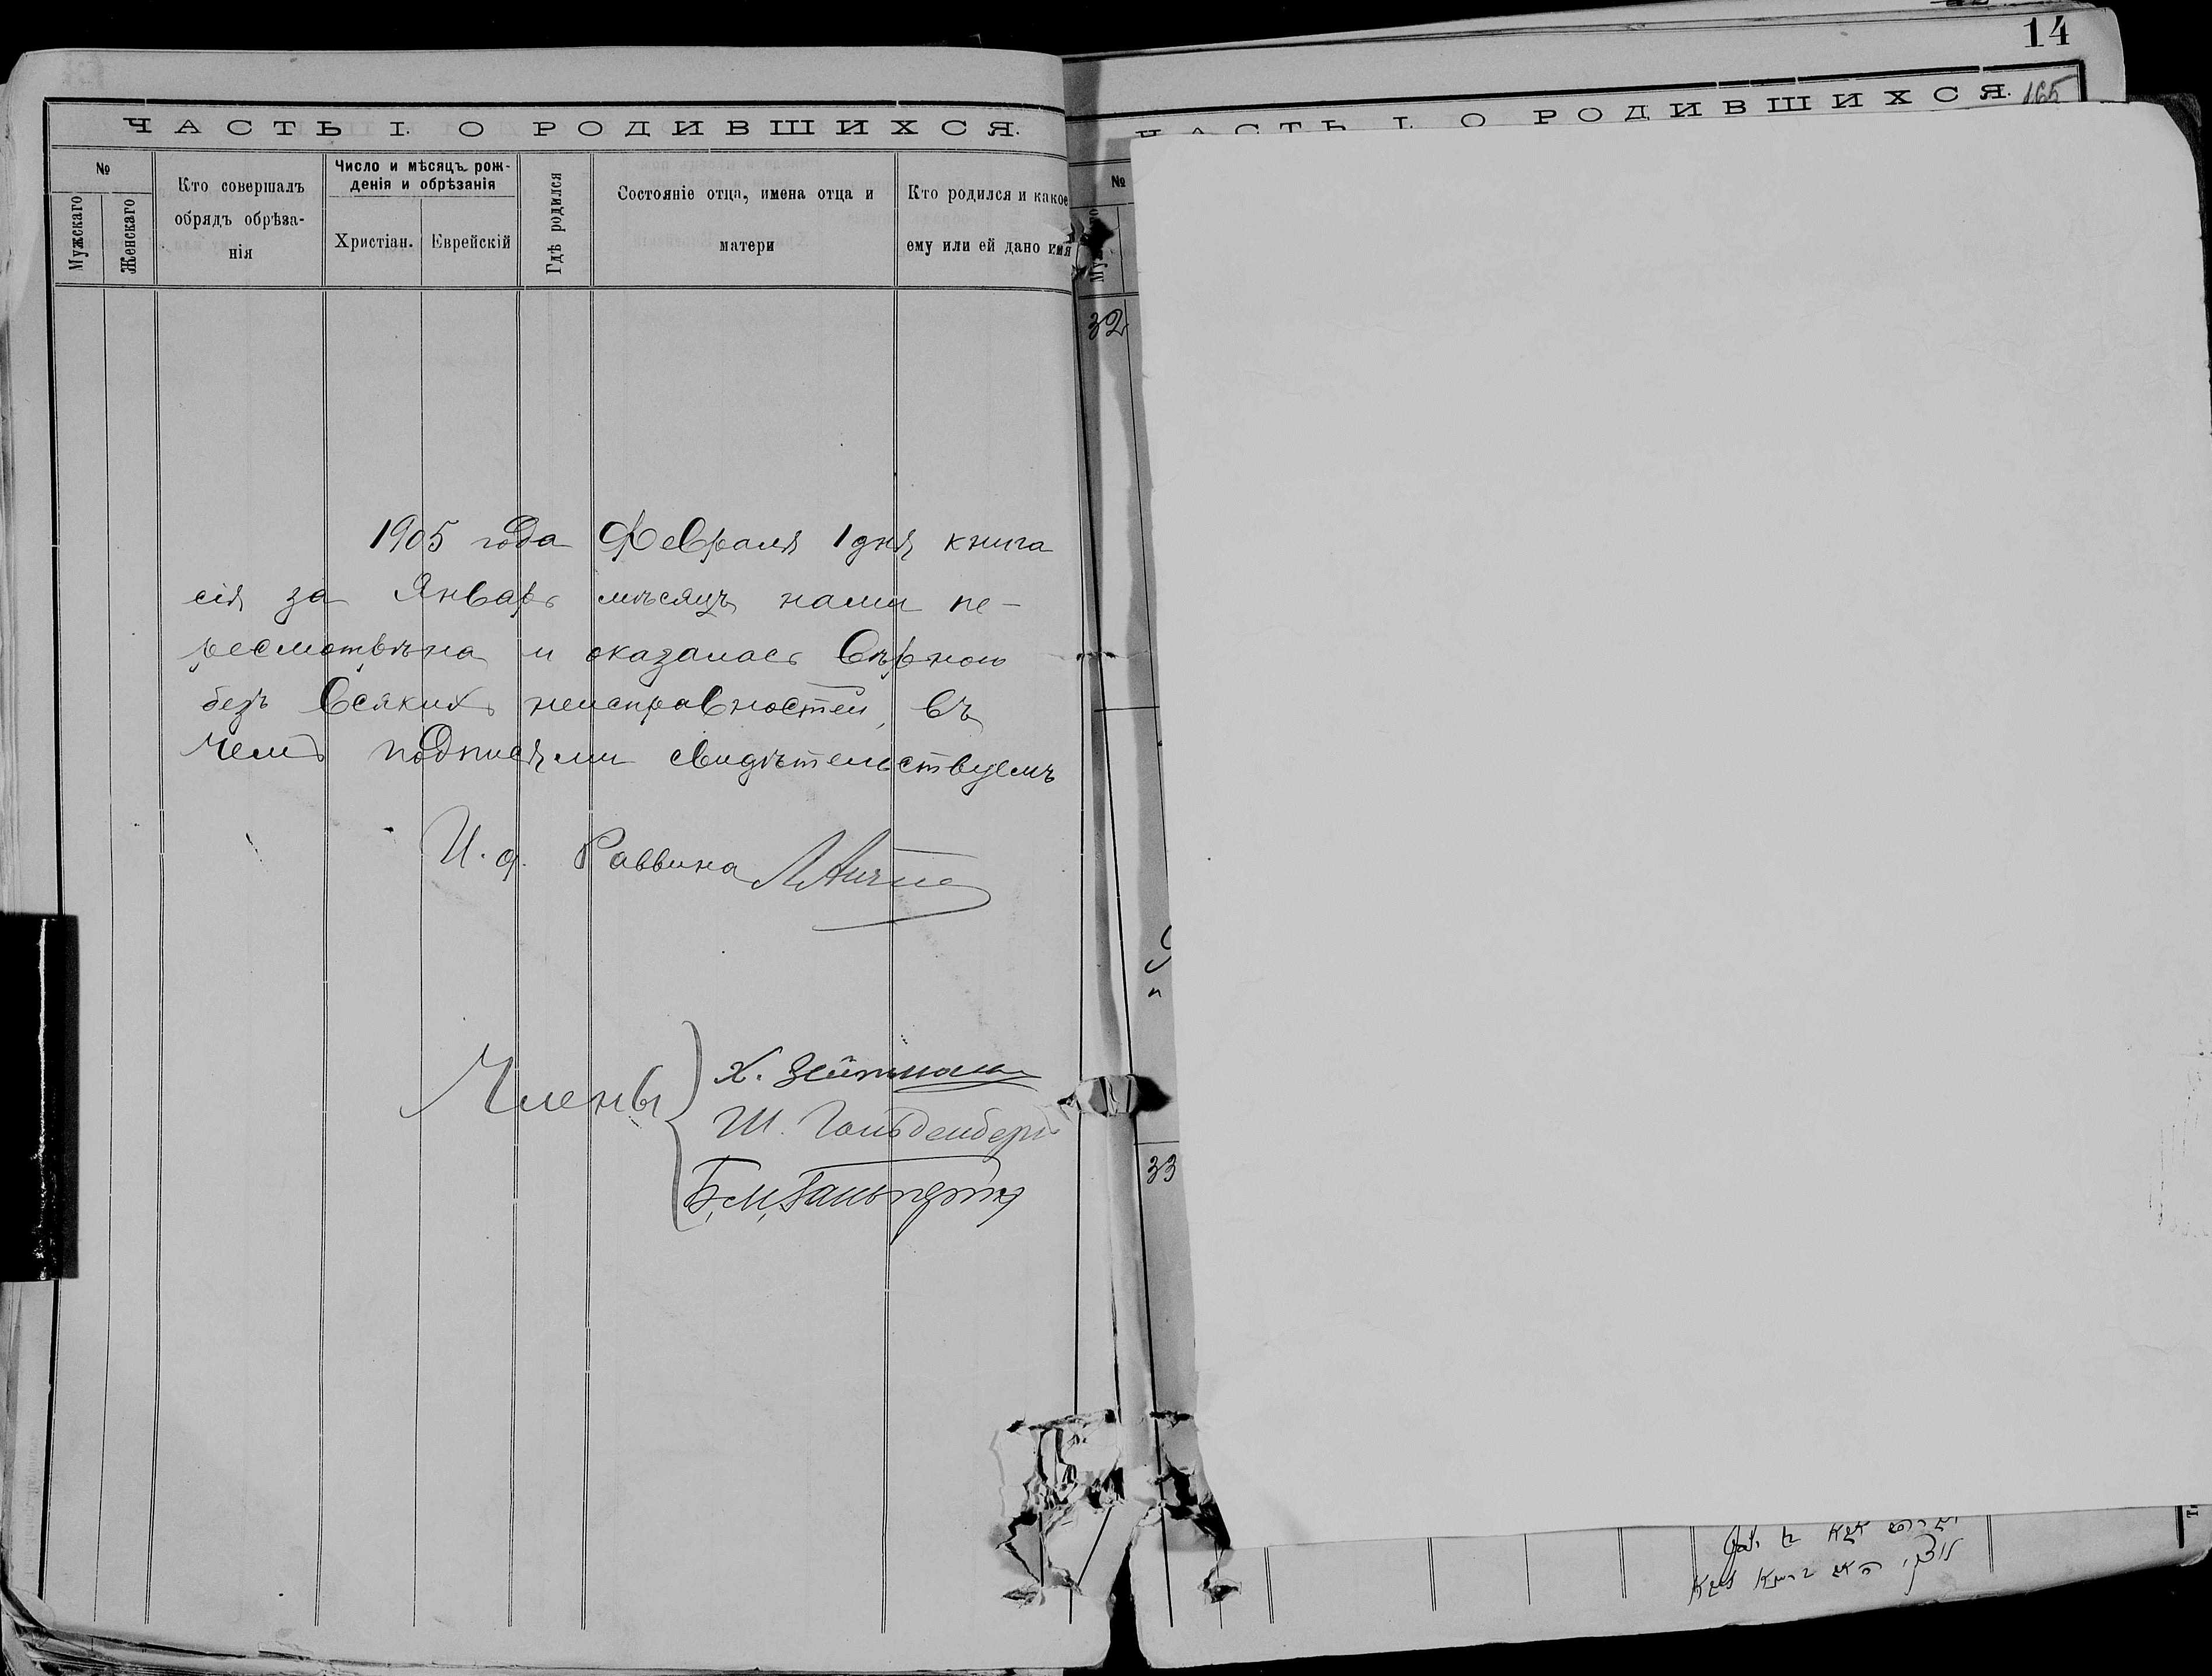 ЧАСТЬ I. О РОДИВШИХСЯ.
№
Мужскаго
Женскаго
Кто совершалъ
обрядъ обрѣза-
нія
Число и мѣсяцъ рож-
денія и обрѣзанія
Христіан.
Еврейскій
Гдѣ родился
Состояніе отца, имена отца и
матери
Кто родился и какое
ему или ей дано имя
1905 года Февраля 1 дня книга
сія за Январь мѣсяцъ нами пе-
ресмотрѣна и оказалась вѣрною
безъ всякихъ неисправностей, въ
чемъ подписями свидѣтельствуемъ
И. д. Раввина
Члены
Х. Зейтман
Ш. Гольденберг
Б. М.
14
165
ЧАСТЬ I. О РОДИВШИХСЯ.
№
32
33